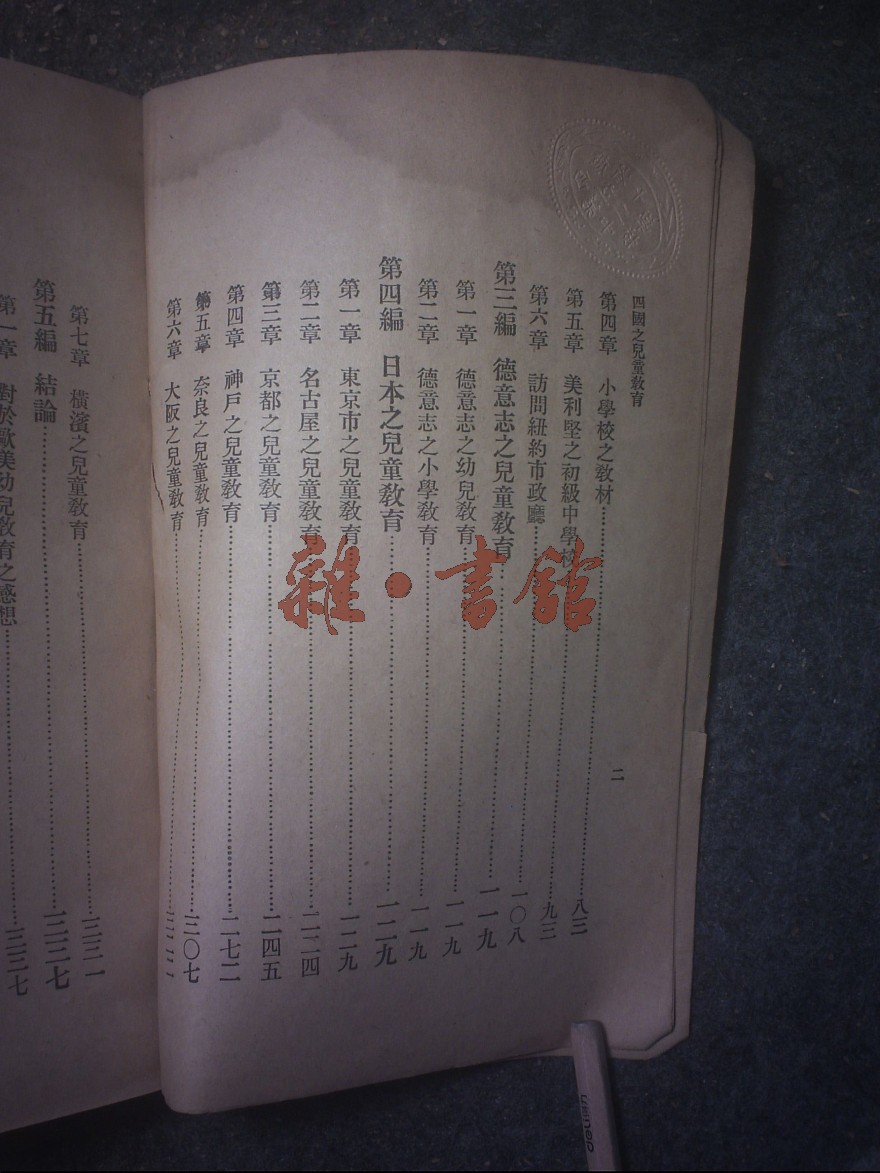 四國之兒童教育
二
第四章 小學校之教材 八三
第五章 美利堅之初級中學校 九三
第六章 訪問紐約市政廳 一〇八
第三編 德意志之兒童教育 一一九
第一章 德意志之幼兒教育 一一九
第二章 德意志之小學教育 一一九
第四編 日本之兒童教育 一二九
第一章 東京市之兒童教育 一二九
第二章 名古屋之兒童教育 二二四
第三章 京都之兒童教育 二四五
第四章 神戸之兒童教育 二七二
第五章 奈良之兒童教育 三〇七
第六章 大阪之兒童教育
第七章 橫濱之兒童教育 三三一
第五編 結論 三三七
第一章 對於歐美幼兒教育之感想 三三七
雜·書館
deli 得力